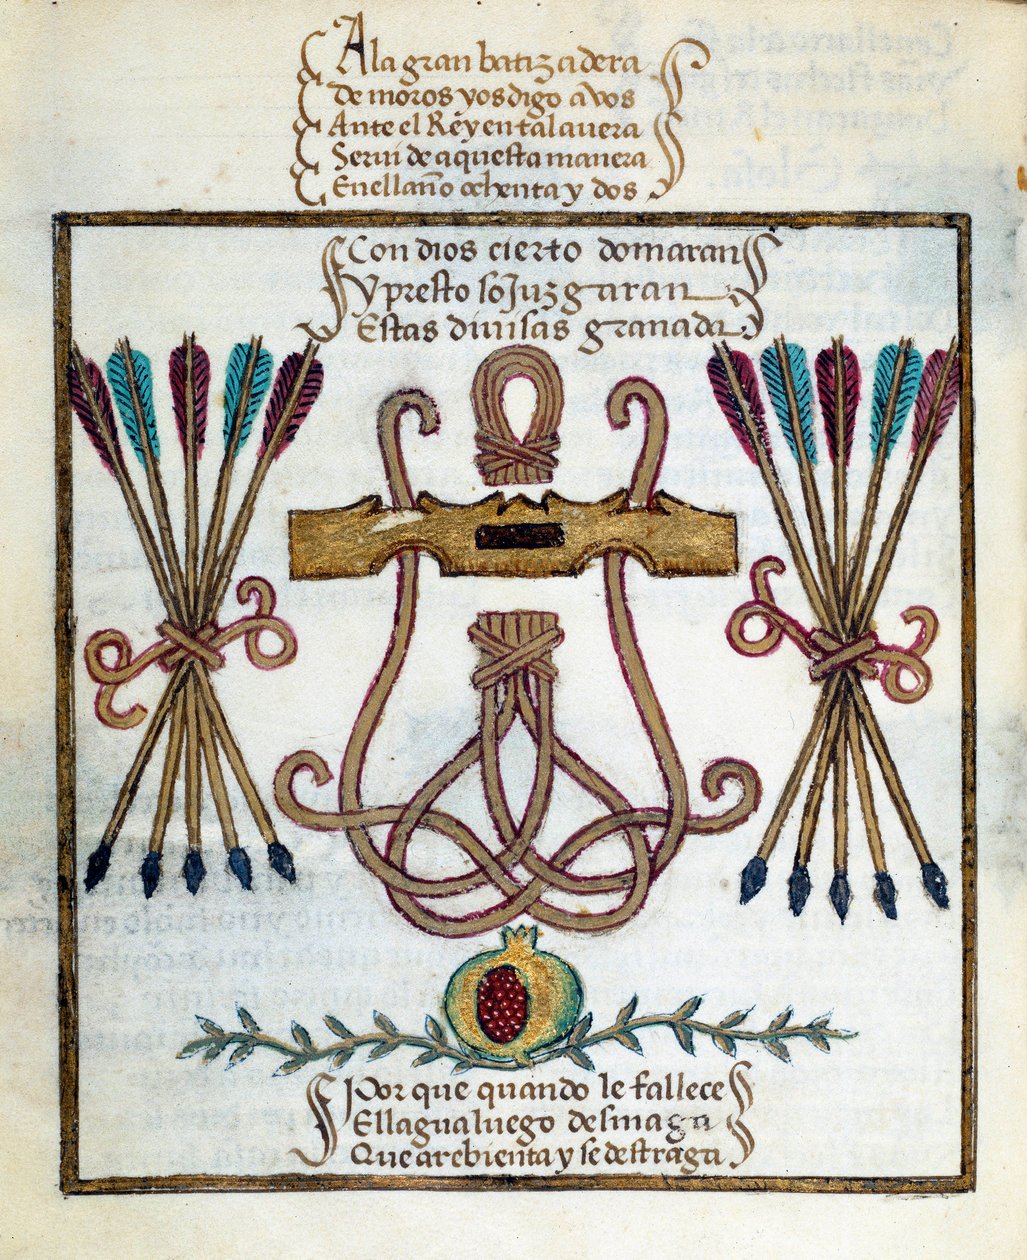 A la gran batizadera
De moros yos digo a vos
Ante el Rey en talavera
Serui de aquesta manera
En ell año ochenta y dos
Con dios cierto domaran
Y presto sojuzgaran
Estas diuisas granada
Por que quando le fallece
Ell agua luego desmaga
Que arebienta y se destraga